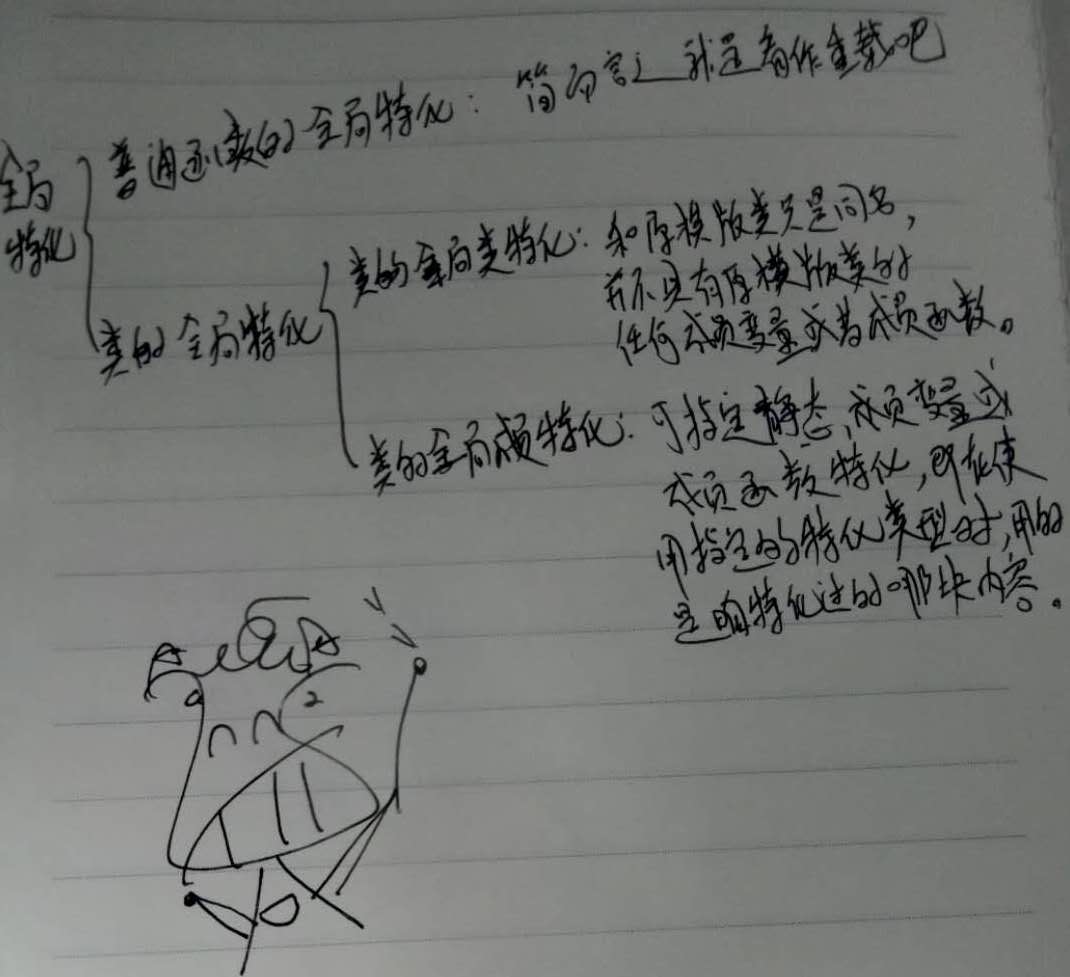 全局
特化
普通函数的全局特化：简而言之 就是看作重载吧
类的全局特化
类的全局类特化：和原模版类只是同名，
并不具有原模版类的
任何成员变量或者成员函数。
类的全局成员特化：可指定静态成员变量或
成员函数特化，即在使
用指定的特化类型时，用的
是特化过的那块内容。